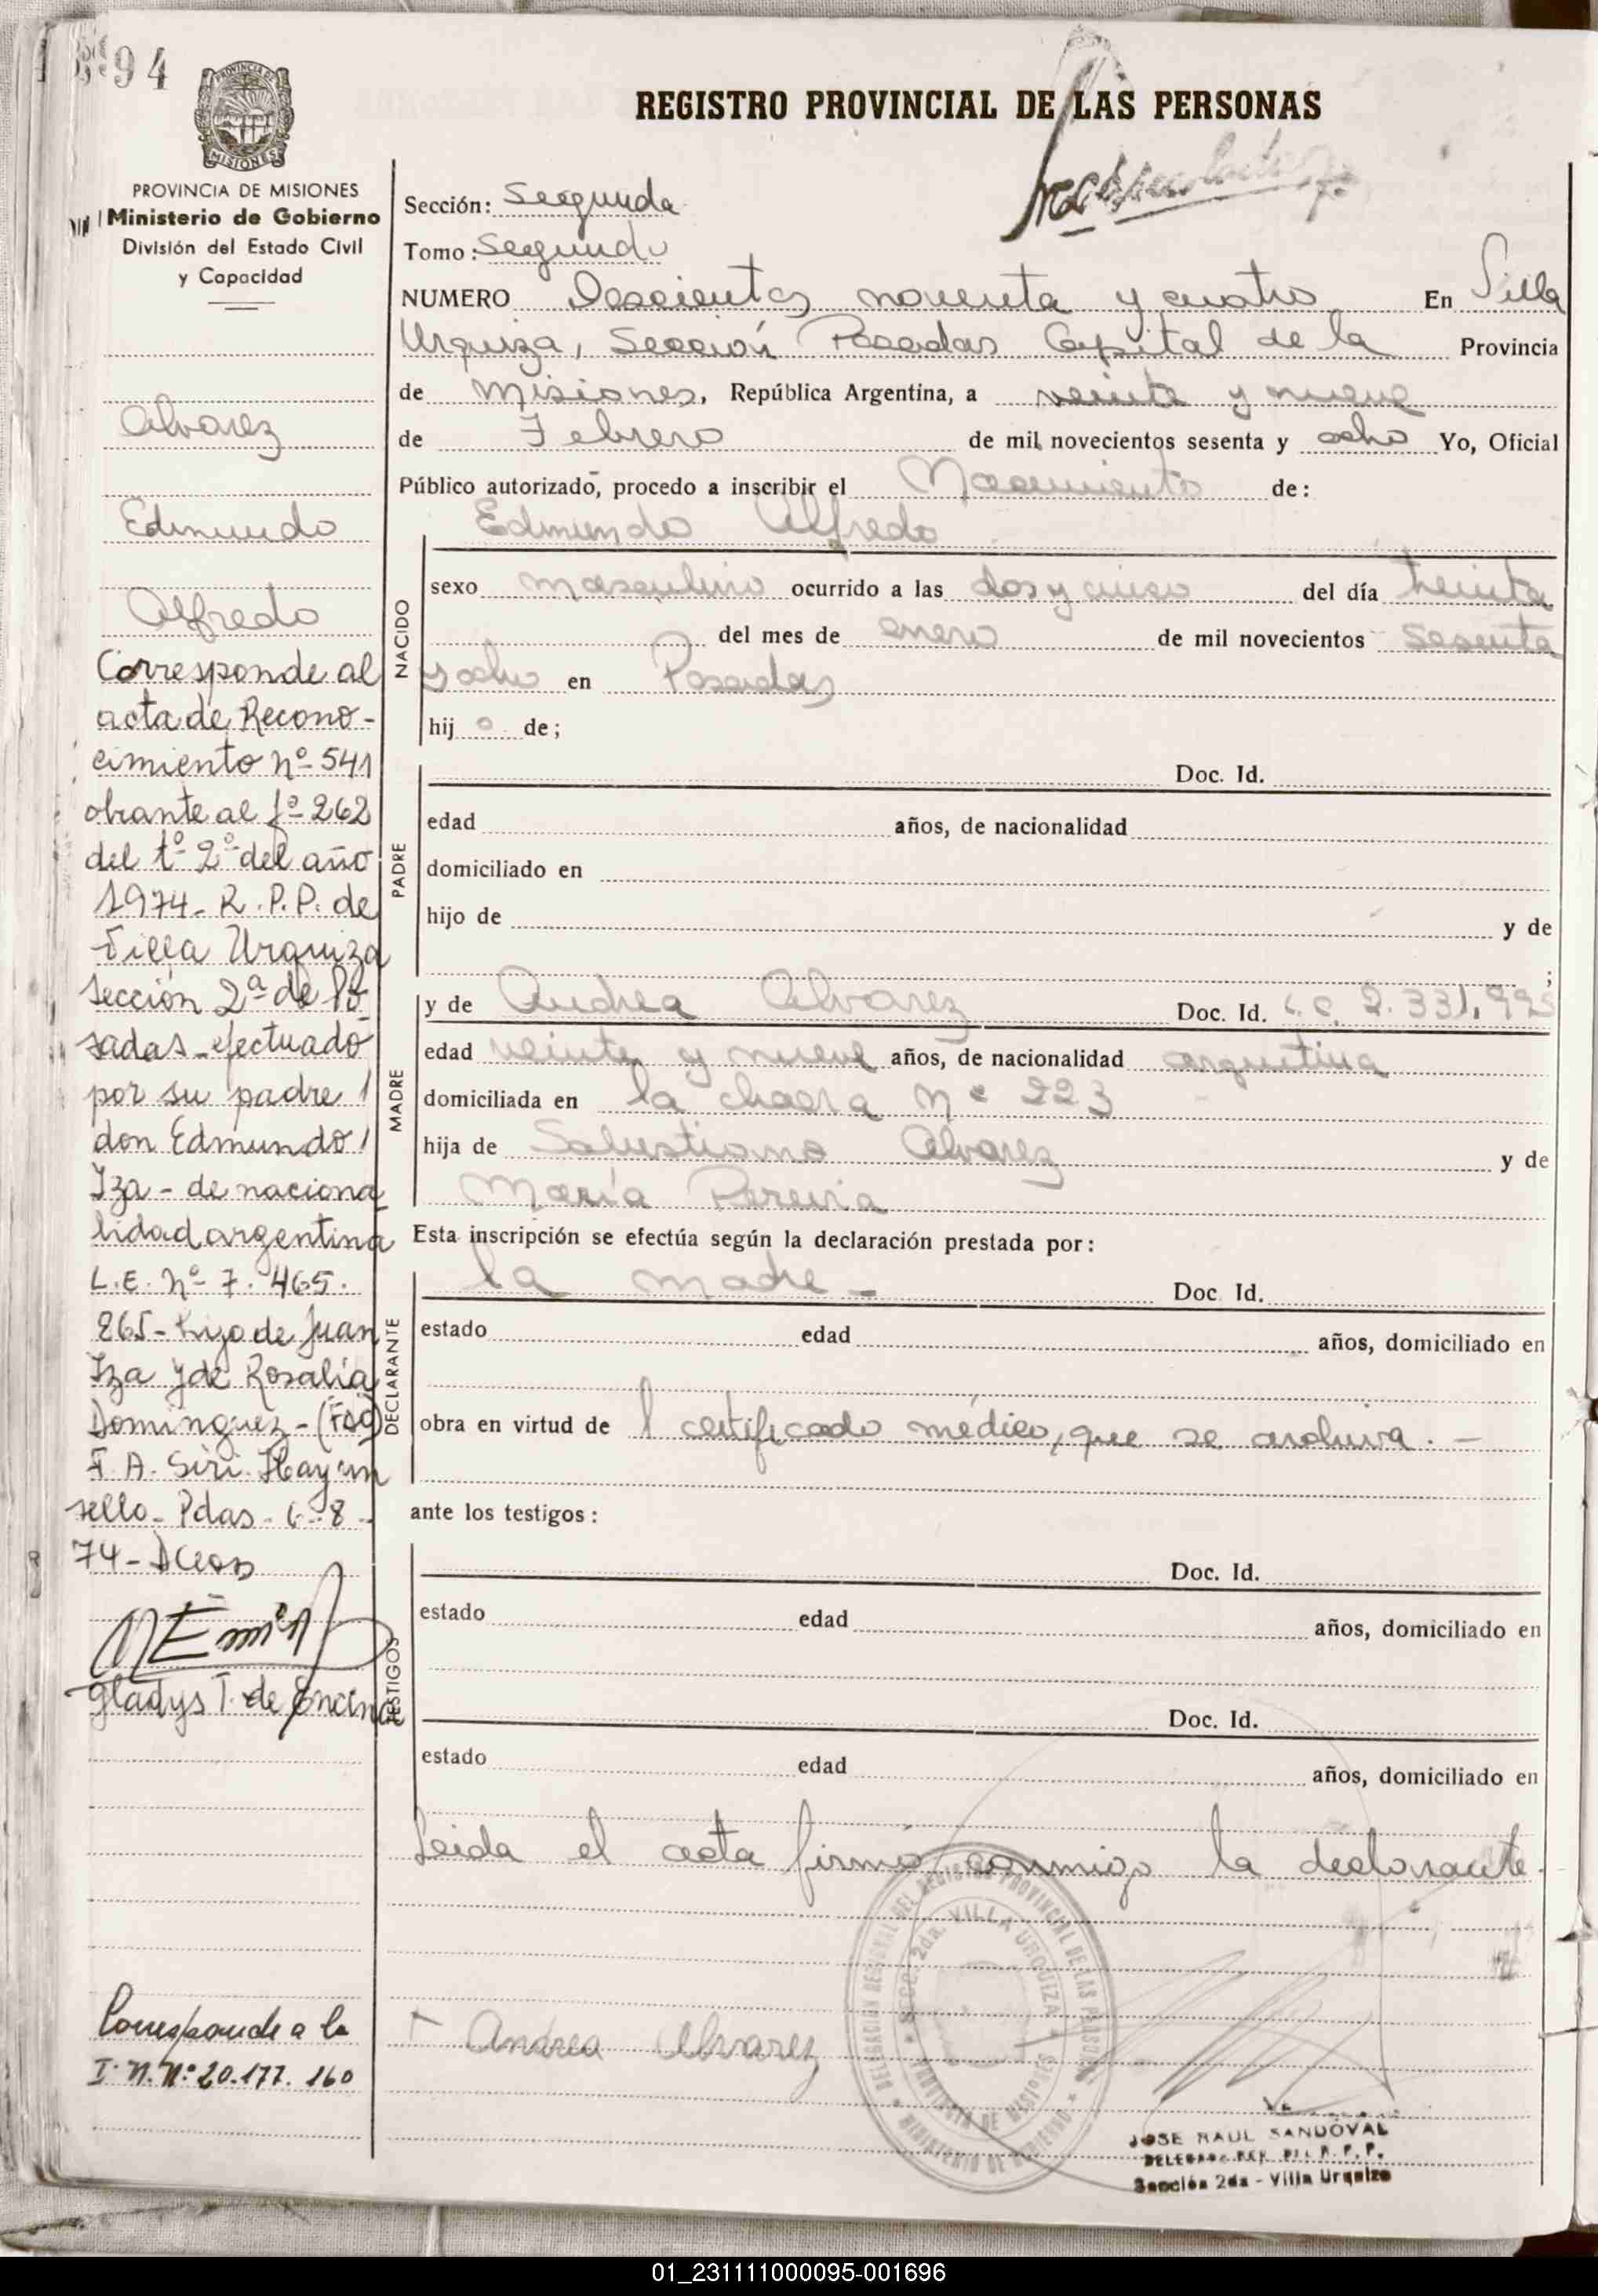 94
PROVINCIA DE
MISIONES
PROVINCIA DE MISIONES
Ministerio de Gobierno
División del Estado Civil
y Capacidad
Alvarez
Edmundo
Alfredo
Corresponde al
acta de Recono-
cimiento nº 541
obrante al fº 262
del tº 2º del año
1974- R.P.P. de
Villa Urquiza
Sección 2ª de Po
sadas-efectuado
por su padre
don Edmundo
Iza - de naciona
lidad argentina
L.E. nº 7.465.
865- hijo de Juan
Iza y de Rosalía
Dominguez - (Fdo)
F. A. Siri. Hay un
sello- Pdas- 6-8-
74-
Gladys T. de Encina
Corresponde a la
I.N. Nº 20.177.160
REGISTRO PROVINCIAL DE LAS PERSONAS
Sección: Segunda
Tomo: Segundo
NUMERO Doscientos noventa y cuatro En Villa
Urquiza, Sección Posadas Capital de la Provincia
de Misiones, República Argentina, a veinte y nueve
de Febrero de mil novecientos sesenta y ocho Yo, Oficial
Público autorizado, procedo a inscribir el Nacimiento de:
Edmundo Alfredo
NACIDO
sexo masculino ocurrido a las dos y cinco del día treinta
del mes de enero de mil novecientos sesenta
y ocho en Posadas
hij o de;
PADRE
Doc. Id.
edad años, de nacionalidad
domiciliado en
hijo de y de
;
MADRE
y de Andrea Alvarez Doc. Id. L.C. 2.331.995
edad veinte y nueve años, de nacionalidad argentina
domiciliada en la chacra Nº 223
hija de Salustiano Alvarez y de
María Pereira
Esta inscripción se efectúa según la declaración prestada por:
DECLARANTE
la madre - Doc. Id.
estado edad años, domiciliado en
obra en virtud de l certificado médico, que se archiva. -
ante los testigos:
TESTIGOS
Doc. Id.
estado edad años, domiciliado en
Doc. Id.
estado edad años, domiciliado en
Leida el acta firmó conmigo la declarante.
Andrea Alvarez
DELEGACION REGIONAL DEL REGISTRO PROVINCIAL DE LAS PERSONAS
SECC. 2da. VILLA URQUIZA
PROVINCIA DE MISIONES
MINISTERIO DE GOBIERNO
JOSE RAUL SANDOVAL
DELEGADO REG. DEL R. P. P.
Sección 2da - Villa Urquiza
01_231111000095-001696